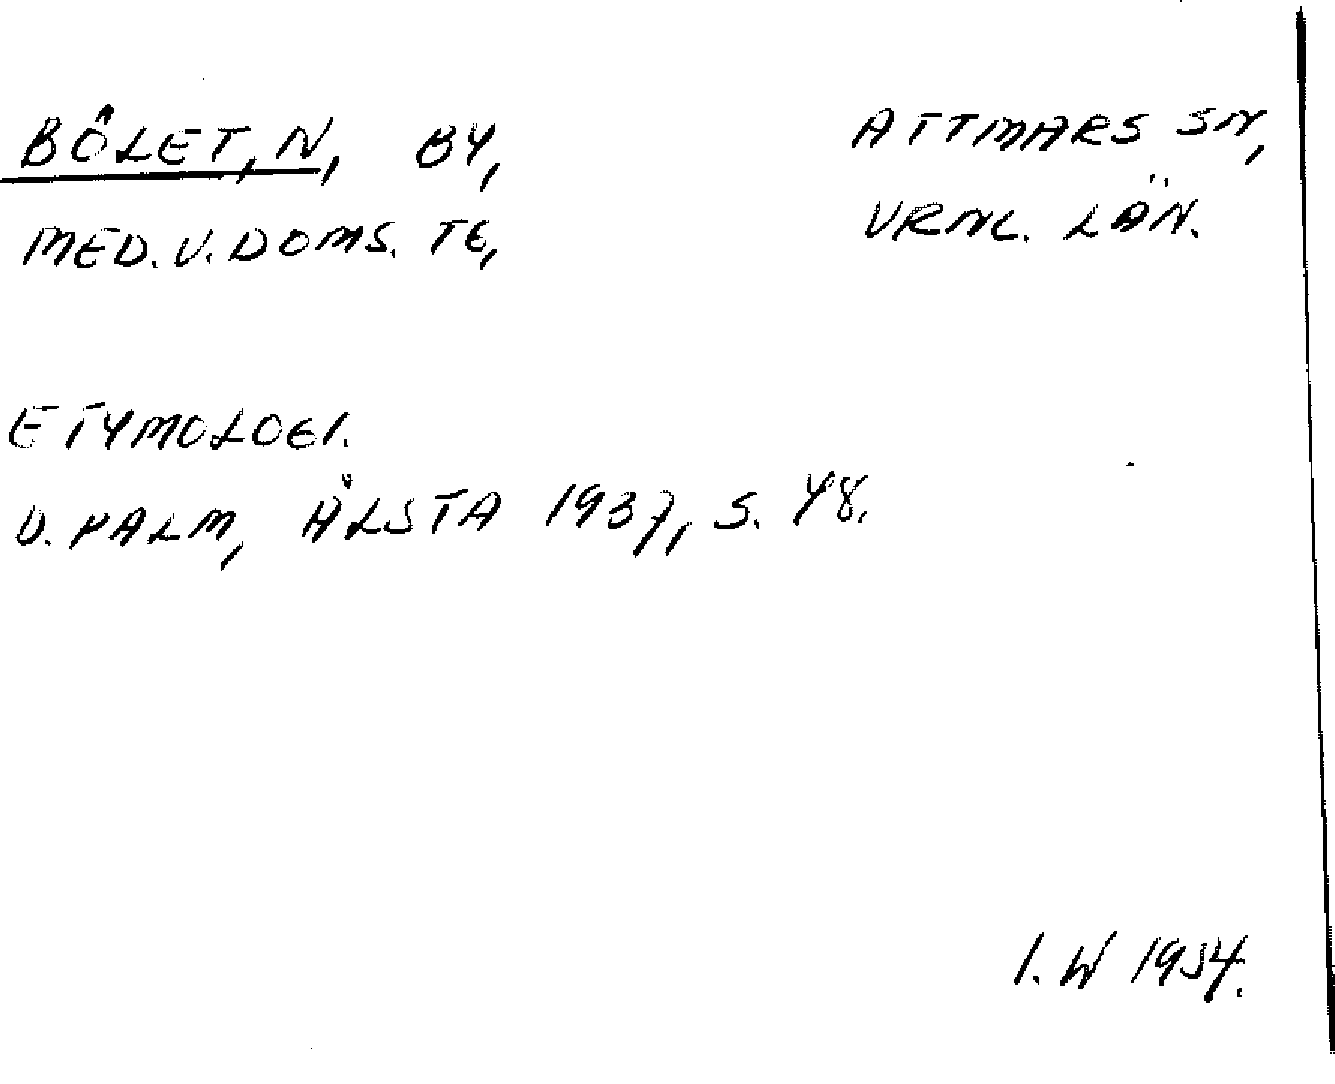 BÖLET, N, BY,
ATTMARS SN,
MED. V. DOMS. TG,
VRNL. LÄN.
ETYMOLOGI.
D. PALM, ÄLSTA 1937, S. 48.
I. W 1954.